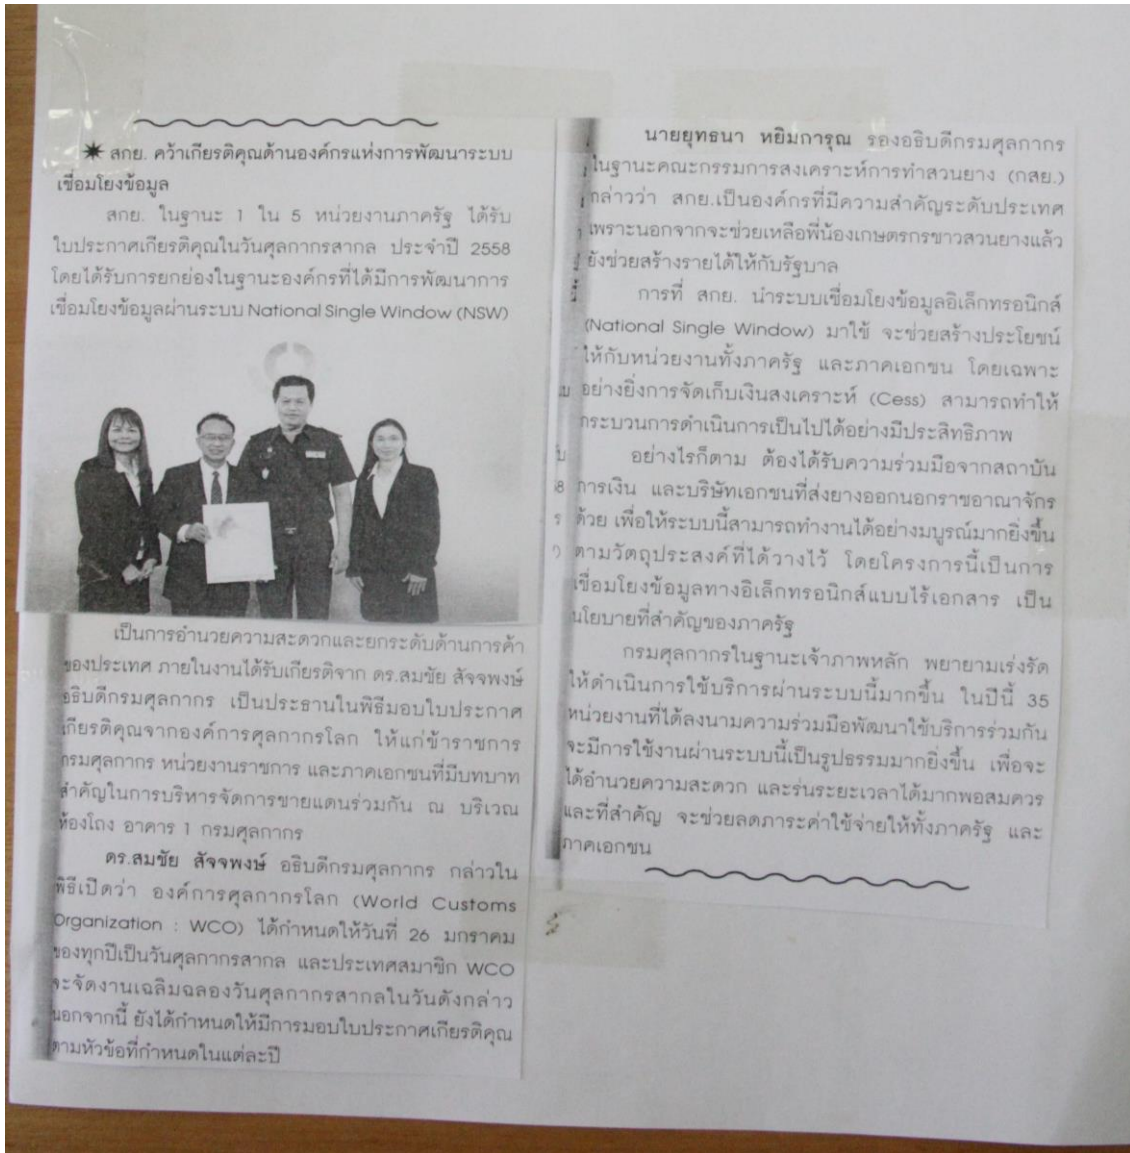 ✷ สกย. คว้าเกียรติคุณด้านองค์กรแห่งการพัฒนาระบบ
เชื่อมโยงข้อมูล
สกย. ในฐานะ 1 ใน 5 หน่วยงานภาครัฐ ได้รับ
ใบประกาศเกียรติคุณในวันศุลกากรสากล ประจำปี 2558
โดยได้รับการยกย่องในฐานะองค์กรที่ได้มีการพัฒนาการ
เชื่อมโยงข้อมูลผ่านระบบ National Single Window (NSW)
เป็นการอำนวยความสะดวกและยกระดับด้านการค้า
ของประเทศ ภายในงานได้รับเกียรติจาก ดร.สมชัย สัจจพงษ์
อธิบดีกรมศุลกากร เป็นประธานในพิธีมอบใบประกาศ
เกียรติคุณจากองค์การศุลกากรโลก ให้แก่ข้าราชการ
กรมศุลกากร หน่วยงานราชการ และภาคเอกชนที่มีบทบาท
สำคัญในการบริหารจัดการชายแดนร่วมกัน ณ บริเวณ
ห้องโถง อาคาร 1 กรมศุลกากร
ดร.สมชัย สัจจพงษ์ อธิบดีกรมศุลกากร กล่าวใน
พิธีเปิดว่า องค์การศุลกากรโลก (World Customs
Organization : WCO) ได้กำหนดให้วันที่ 26 มกราคม
ของทุกปีเป็นวันศุลกากรสากล และประเทศสมาชิก WCO
จะจัดงานเฉลิมฉลองวันศุลกากรสากลในวันดังกล่าว
นอกจากนี้ ยังได้กำหนดให้มีการมอบใบประกาศเกียรติคุณ
ตามหัวข้อที่กำหนดในแต่ละปี
นายยุทธนา หยิมการุณ รองอธิบดีกรมศุลกากร
ในฐานะคณะกรรมการสงเคราะห์การทำสวนยาง (กสย.)
กล่าวว่า สกย.เป็นองค์กรที่มีความสำคัญระดับประเทศ
เพราะนอกจากจะช่วยเหลือพี่น้องเกษตรกรชาวสวนยางแล้ว
ยังช่วยสร้างรายได้ให้กับรัฐบาล
การที่ สกย. นำระบบเชื่อมโยงข้อมูลอิเล็กทรอนิกส์
(National Single Window) มาใช้ จะช่วยสร้างประโยชน์
ให้กับหน่วยงานทั้งภาครัฐ และภาคเอกชน โดยเฉพาะ
อย่างยิ่งการจัดเก็บเงินสงเคราะห์ (Cess) สามารถทำให้
กระบวนการดำเนินการเป็นไปได้อย่างมีประสิทธิภาพ
อย่างไรก็ตาม ต้องได้รับความร่วมมือจากสถาบัน
การเงิน และบริษัทเอกชนที่ส่งยางออกนอกราชอาณาจักร
ด้วย เพื่อให้ระบบนี้สามารถทำงานได้อย่างมบูรณ์มากยิ่งขึ้น
ตามวัตถุประสงค์ที่ได้วางไว้ โดยโครงการนี้เป็นการ
เชื่อมโยงข้อมูลทางอิเล็กทรอนิกส์แบบไร้เอกสาร เป็น
นโยบายที่สำคัญของภาครัฐ
กรมศุลกากรในฐานะเจ้าภาพหลัก พยายามเร่งรัด
ให้ดำเนินการใช้บริการผ่านระบบนี้มากขึ้น ในปีนี้ 35
หน่วยงานที่ได้ลงนามความร่วมมือพัฒนาใช้บริการร่วมกัน
จะมีการใช้งานผ่านระบบนี้เป็นรูปธรรมมากยิ่งขึ้น เพื่อจะ
ได้อำนวยความสะดวก และร่นระยะเวลาได้มากพอสมควร
และที่สำคัญ จะช่วยลดภาระค่าใช้จ่ายให้ทั้งภาครัฐ และ
ภาคเอกชน